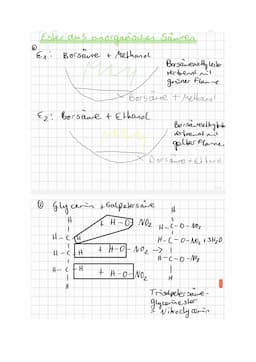 Ester aus anorganischen Säuren
E₁: Borsäure + Methanol
Borsäuremethylester
verbrennt mit
grüner Flamme
Borsäure + Methanol
E₂: Borsäure + Ethanol
verbrennt mit
gelber Flamme.
Borsäure + Ethanol
Glycerin + Salpetersäure
H H
H-C-H + H-O-NO₂ H-C-O-NO₂
H-C-H + H-O-NO₂ → H-C-O-NO₂ + 3H₂O
H-C-H + H-O-NO₂ H-C-O-NO₂
H H
Trisalpetersäure-
glycerinester
= Nitroglycerin